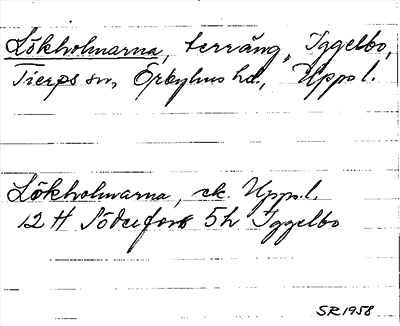 Lökholmarna, terräng, Iggelbo,
Tierps sn, Örbyhus hd., Upps l.
Lökholmarna, ek. Upps. l.
12 H Söderfors 5h Iggelbo
SR 1958